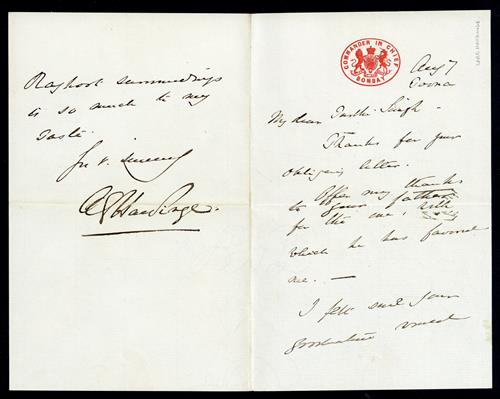 COMMANDER IN CHIEF
BOMBAY
Aug 7
Poona
My dear Singh -
Thanks for your
obliging letter.
Offer my thanks
to your father
for the one, with
which he has favored
me. —
I feel sure your
Rajkot surroundings
is so much to my
taste.
Yrs v. sincerely
Hardinge.